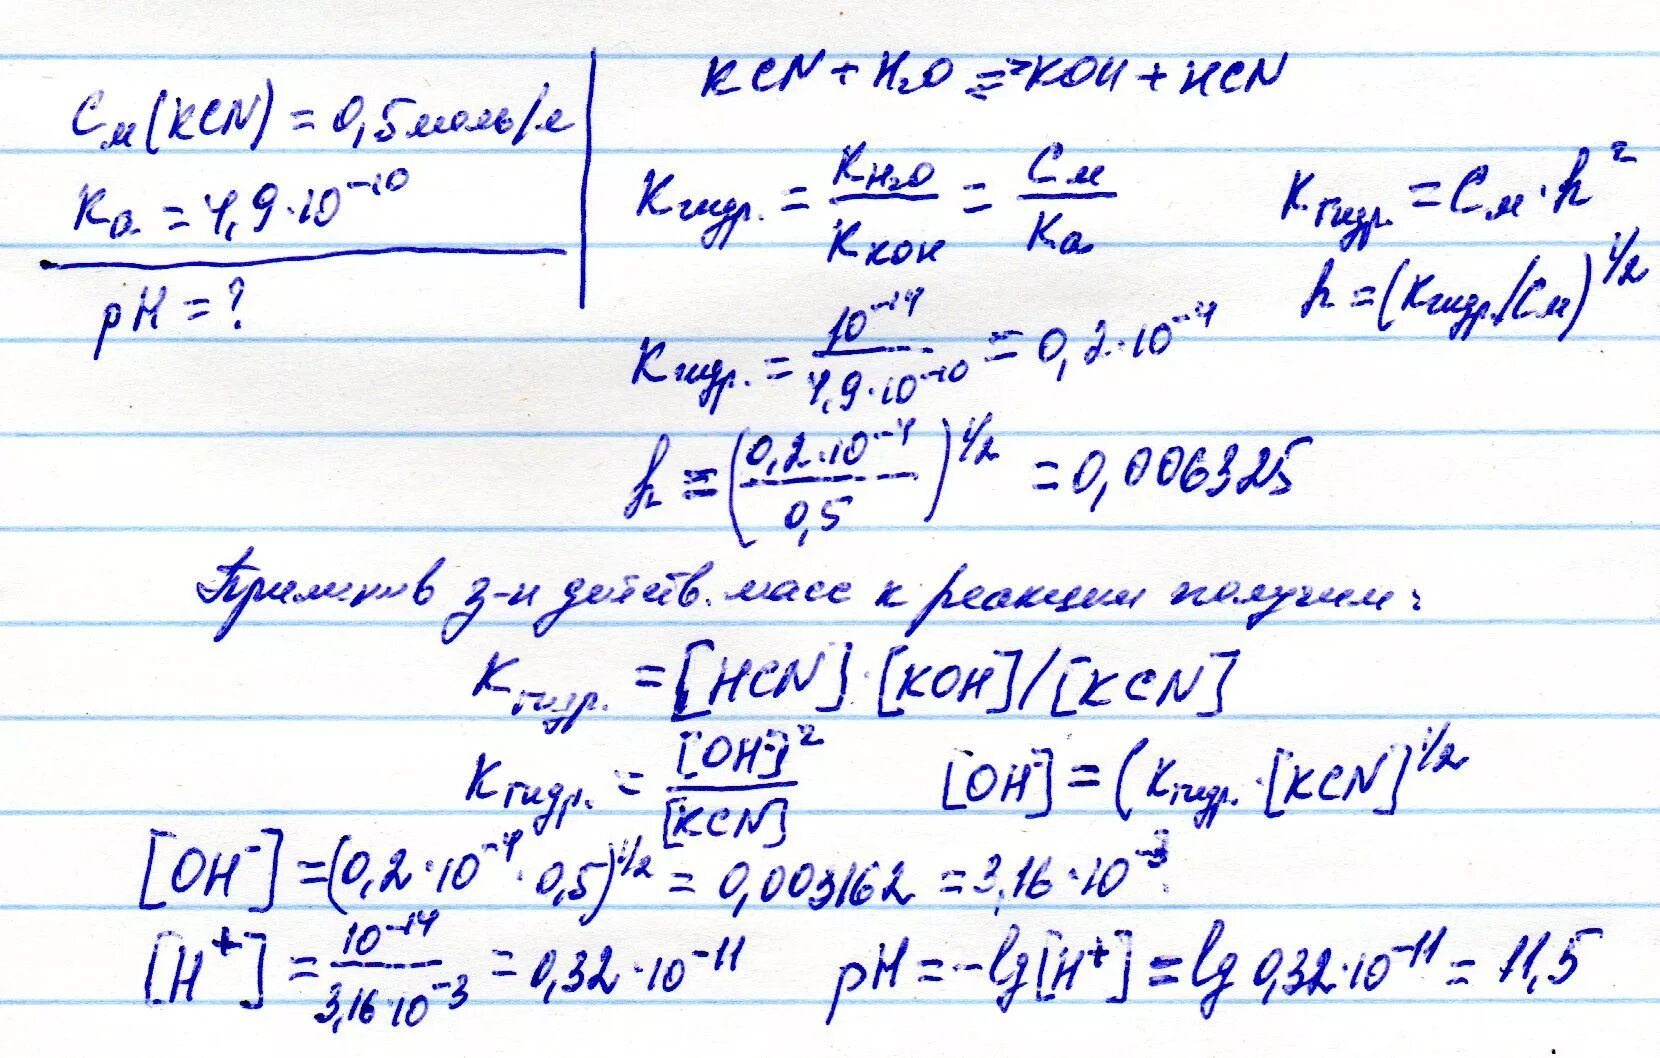 См(KCN) = 0,5 моль/л
Ka = 4,9·10⁻¹⁰
pH = ?
KCN + H₂O ⇌ KOH + HCN
Kгидр. = KH₂O/KKOH = См/Ka
Kгидр. = См·h²
h = (Kгидр./См)^1/2
Kгидр. = 10⁻¹⁴/4,9·10⁻¹⁰ = 0,2·10⁻⁴
h = (0,2·10⁻⁴/0,5)^1/2 = 0,006325
Применив з-н действ. масс к реакции получим:
Kгидр. = [HCN]·[KOH]/[KCN]
Kгидр. = [OH⁻]²/[KCN]
[OH⁻] = (Kгидр.·[KCN]^1/2
[OH⁻] = (0,2·10⁻⁴·0,5)^1/2 = 0,003162 = 3,16·10⁻³
[H⁺] = 10⁻¹⁴/3,16·10⁻³ = 0,32·10⁻¹¹
pH = -lg[H⁺] = lg 0,32·10⁻¹¹ = 11,5